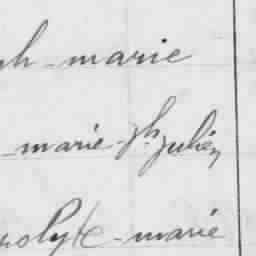 ph - marie
- marie - Jh Julien
polyte - marie